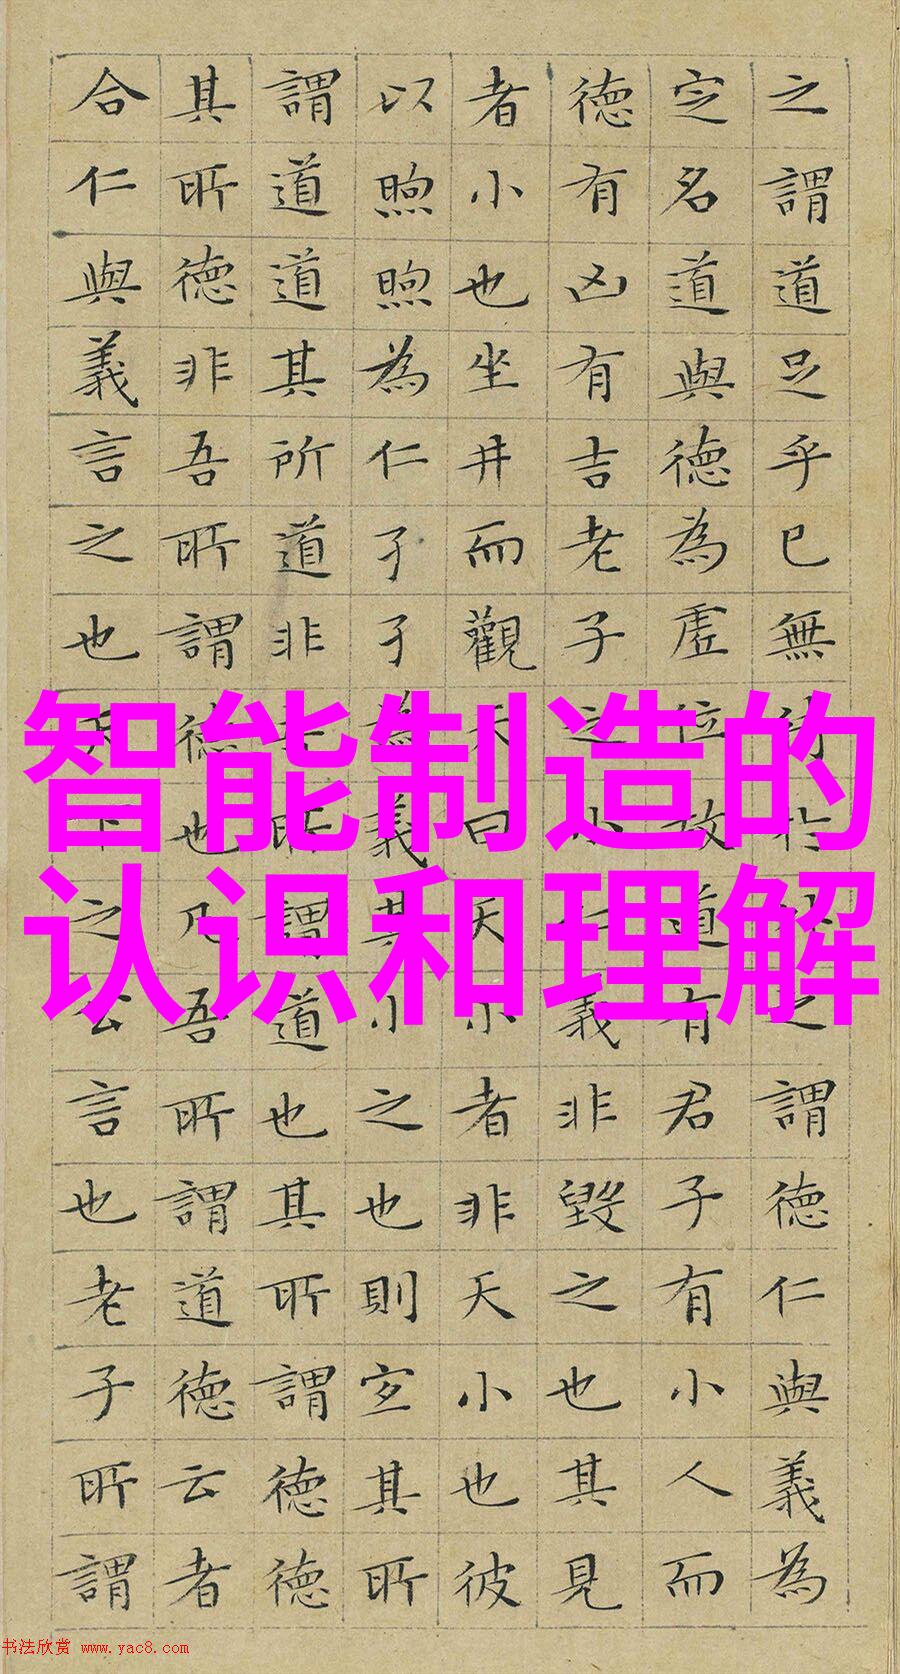 智能制造的
认识和理解
之謂道足乎已無待於之謂德仁與義為
定名道與德為虛位故道有君子有小人而
德有凶有吉老子之小義非毀之也其見
者小也坐井而觀天曰天小者非天小也彼
以煦煦為仁孑孑為義其小之也則宜其所
謂道道其所道非吾所謂道也其所謂德德
其所德非吾所謂德也凡吾所謂道德云者
合仁與義言之也天下之公言也老子所謂
书法欣赏 www.yac8.com